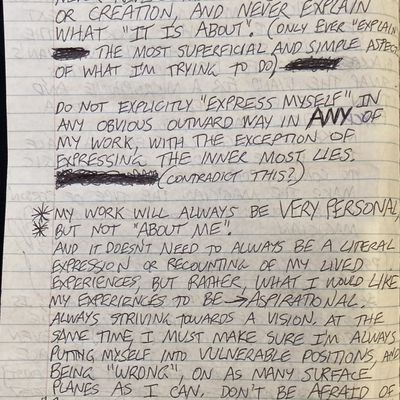 OR CREATION, AND NEVER EXPLAIN
WHAT "IT IS ABOUT". (ONLY EVER "EXPLAIN"
THE MOST SUPERFICIAL AND SIMPLE ASPECT
OF WHAT I'M TRYING TO DO)
DO NOT EXPLICITLY "EXPRESS MYSELF" IN
ANY OBVIOUS OUTWARD WAY IN ANY OF
MY WORK, WITH THE EXCEPTION OF
EXPRESSING THE INNER MOST LIES.
(CONTRADICT THIS?)
* MY WORK WILL ALWAYS BE VERY PERSONAL,
* BUT NOT "ABOUT ME".
AND IT DOESN'T NEED TO ALWAYS BE A LITERAL
EXPRESSION OR RECOUNTING OF MY LIVED
EXPERIENCES, BUT RATHER, WHAT I WOULD LIKE
MY EXPERIENCES TO BE → ASPIRATIONAL.
ALWAYS STRIVING TOWARDS A VISION. AT THE
SAME TIME, I MUST MAKE SURE I'M ALWAYS
PUTTING MYSELF INTO VULNERABLE POSITIONS, AND
BEING "WRONG", ON AS MANY SURFACE
PLANES AS I CAN. DON'T BE AFRAID OF